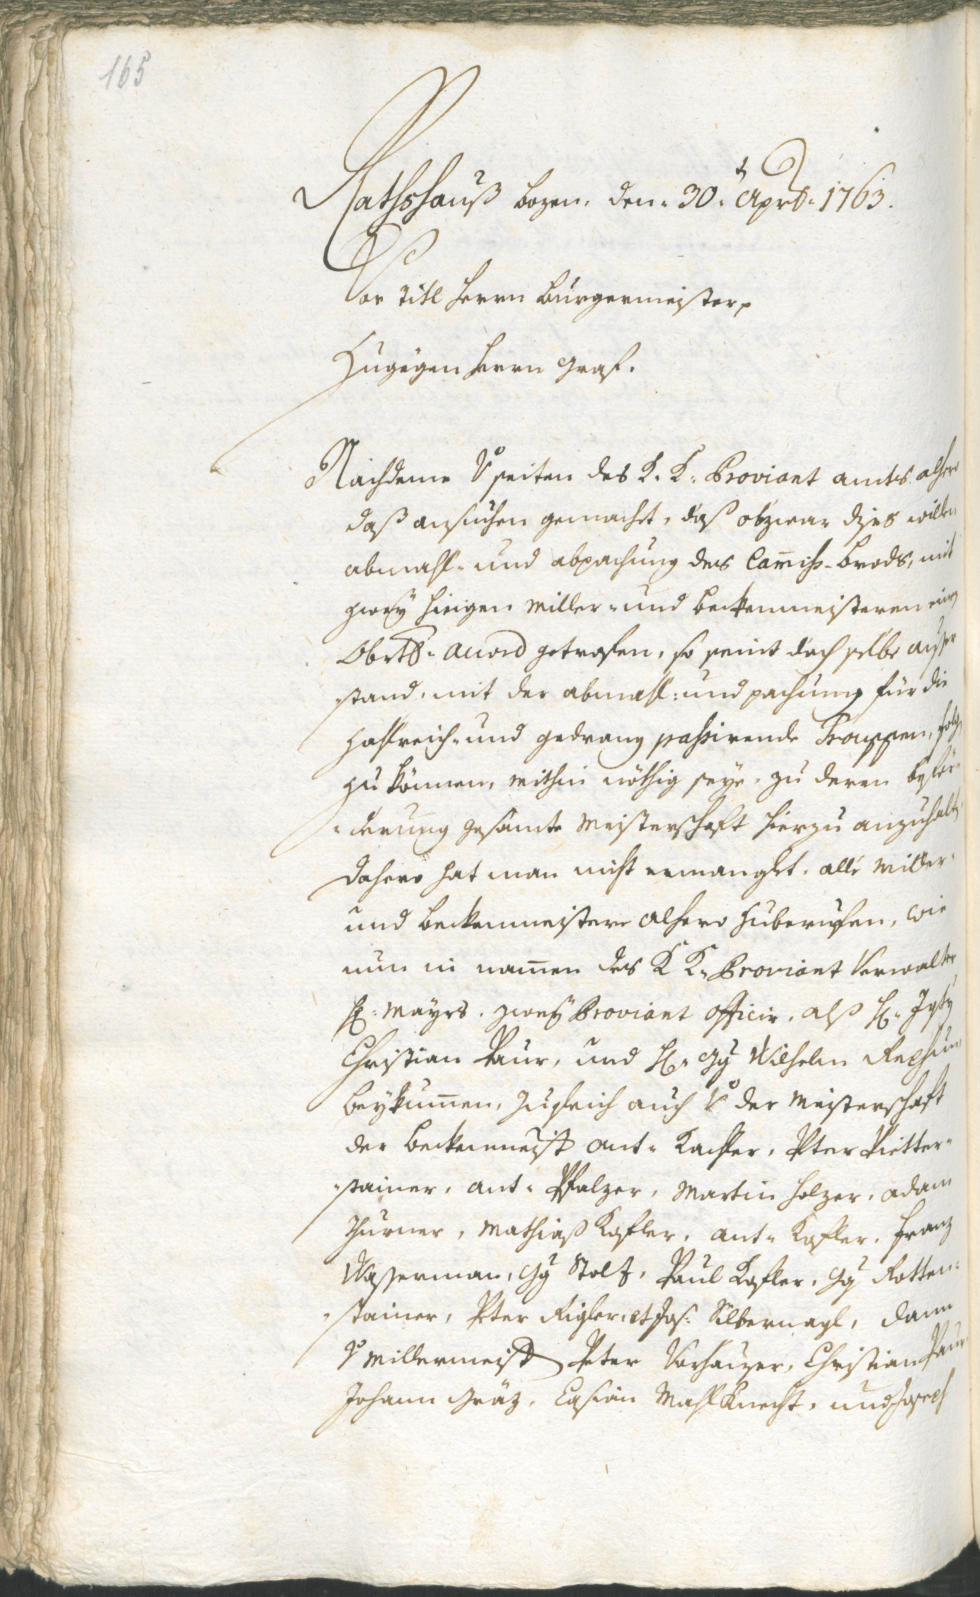 165
Rathshauß Bozen, den 30.t Aprs. 1763.
Vor Titl Herrn Burgermeister,
Zugegen Herrn Graf.
Nachdeme V. seiten des K. K. Proviant amts alhero
daß ansuchen gemacht, daß obzwar dises willen
abmahl- und abpachung des Com̄iss-Brods, mit
zwey hiesigen Miller- und Beckenmeisteren ein
Accord getrofen, so seint doch selbe ausser
stand, mit der abmahl- und pachung für die
zahlreich- und gedrang passirende Trouppen,
zu können, mithin nöthig seye, zu deren beför-
derung gesamte Meisterschaft hierzu anzuhalten
dahero hat man nicht ermanglt, alle Miller-
und Beckenmeistere alhero zuberufen, wie
nun in nam̄en des K K. Proviant Verwalter
H: Mayrs, zwey Proviant officier, alß H:
Christian Paur, und H: Gg Wilhelm
beykum̄en, zugleich auch V. der Meisterschaft
der Beckenmeist. Ant. Kachler, Peter Pietter-
stainer, Ant. Pfalzer, Martin Holzer, Adam
Thurner, Mathias Kofler, Ant. Kofler, Franz
Wasserman, Gg Stolz, Paul Kofler, Gg Rotten-
stainer, Peter Rigler, et Jos: Silbernagl, dann
V. Millermeist. Peter Vorhauzer, Christian Paur
Johann Gräz, Casian Mahlknecht, und Joseph